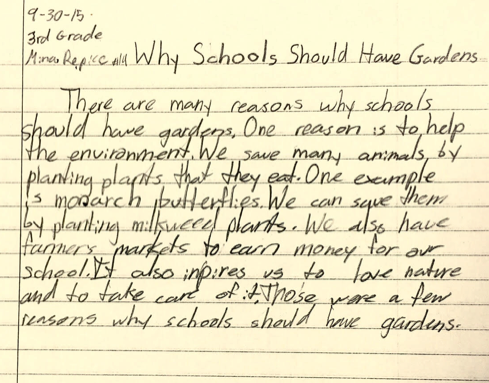 9-30-15.
3rd Grade
Why Schools Should Have Gardens
There are many reasons why schools
should have gardens. One reason is to help
the environment. We save many animals by
planting plants that they eat. One example
is monarch butterflies. We can save them
by planting milkweed plants. We also have
farmers markets to earn money for our
school. It also inpires us to love nature
and to take care of it. Those were a few
reasons why schools should have gardens.